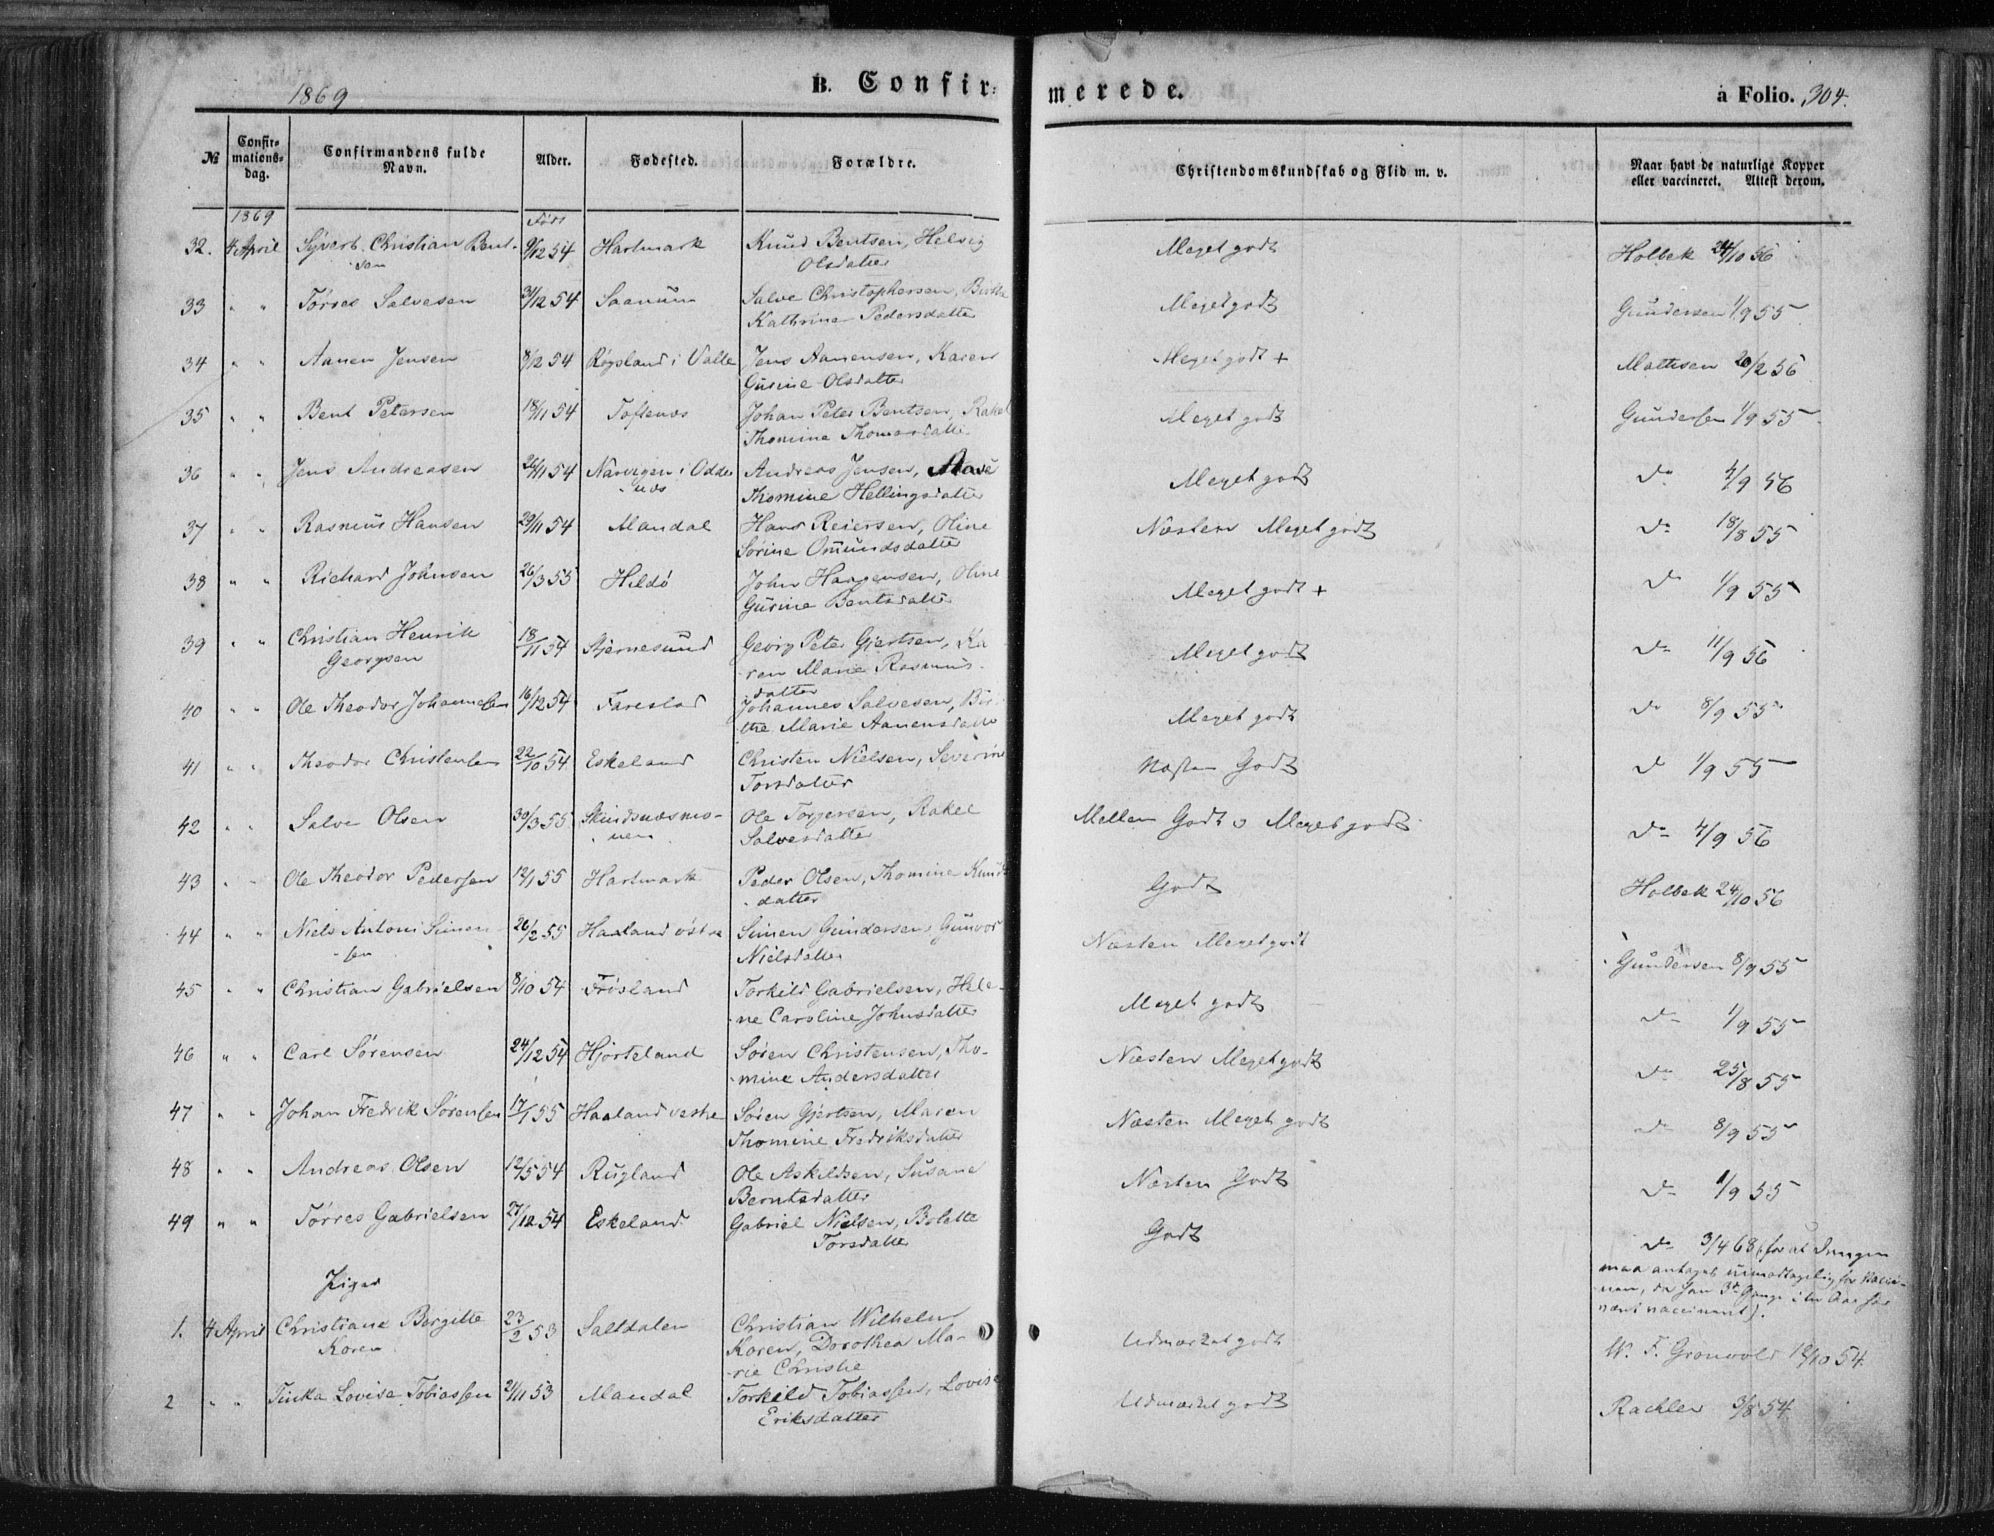 1869 B. Confir- merede. à Folio. 304.
№ Confirmations-dag. Confirmandens fulde Navn. Alder. Fødested. Forældre. Christendomskundskab og Flid m. v. Naar havt de naturlige Kopper eller vaccineret. Attest derom.
1869 Født
32. 4 April Syvert Christian Bent- 9/12 54 Hartmark Knud Bentsen, Helvig Meget godt Holbek 24/10 56
sen Olsdatter
33 " " Tørres Salvesen 31/12 54 Saanum Salve Christophersen, Birthe Meget godt Gundersen 1/9 55
Kathrine Pedersdatter
34 " " Aanen Jensen 8/12 54 Røgsland i Valle Jens Aanensen, Karen Meget godt + Mathisen 20/2 56
Gurine Olsdatter
35 " " Bent Petersen 18/11 54 Toftenes Johan Peter Bentsen, Rakel Meget godt Gundersen 1/9 55
Thomine Thomasdatter
36 " " Jens Andreasen 26/11 54 i Odder- Andreas Jensen, Meget godt do 4/9 56
næs Thomine Hellingsdatter
37 " " Rasmus Hansen 29/11 54 Mandal Hans Reiersen, Oline Næsten Meget godt do 18/8 55
Sørine Omundsdatter
38 " " Richard Johnsen 26/3 55 Hildø John Haagensen, Oline Meget godt + do 1/9 55
Gurine Bentsdatter
39 " " Christian Henrik 18/11 54 Stjernesund Georg Peter Gjertsen, Ka- Meget godt do 11/9 56
Georgsen ren Marie Rasmus-
datter
40 " " Ole Theodor Johannesen 16/12 54 Farestad Johannes Salvesen, Bir- Meget godt do 8/9 55
the Marie Aanensdatter
41 " " Theodor Christensen 22/10 54 Eskeland Christen Nielsen, Severine Næsten Godt do 1/9 55
Torsdatter
42 " " Salve Olsen 30/3 55 Skindsnæsmo- Ole Torjersen, Rakel Mellem Godt o Meget godt do 4/9 56
nen Salvesdatter
43 " " Ole Theodor Pedersen 12/1 55 Hartmark Peder Olsen, Thomine Knuds- Godt Holbek 24/10 56
datter
44 " " Niels Antoni Simon- 26/2 55 Haaland østre Simen Gundersen, Gunvor Næsten Meget godt Gundersen 8/9 55
sen Nielsdatter
45 " " Christian Gabrielsen 8/10 54 Frøsland Torkild Gabrielsen, Hele- Meget godt do 1/9 55
ne Caroline Johnsdatter
46 " " Carl Sørensen 24/12 54 Hjorteland Søren Christensen, Tho- Næsten Meget godt do 25/8 55
mine Andersdatter
47 " " Johan Fredrik Sørensen 17/1 55 Haaland vestre Søren Gjertsen, Maren Næsten Meget godt do 8/9 55
Thomine Fredriksdatter
48 " " Andreas Olsen 12/5 54 Rugland Ole Askildsen, Susane Næsten Godt do 1/9 55
Berntsdatter
49 " " Tørres Gabrielsen 27/12 54 Eskeland Gabriel Nielsen, Bolette Godt do 3/4 68 (for at Drengen
Torsdatter maa antages uimodtagelig for Vacci-
nen, da han 3de Gange i
været vaccineret).
Piger
1. 4 April Christiane Bergitte 23/2 53 Saltdalen Christian Wilhelm Udmærket godt W. F. Gronvold 12/10 54
Koren Koren, Dorothea Ma-
rie Christie
2 " " Tinka Lovise Tobiassen 21/11 53 Mandal Torkild Tobiassen, Lovise Udmærket godt Rachlew 3/8 54
Eriksdatter